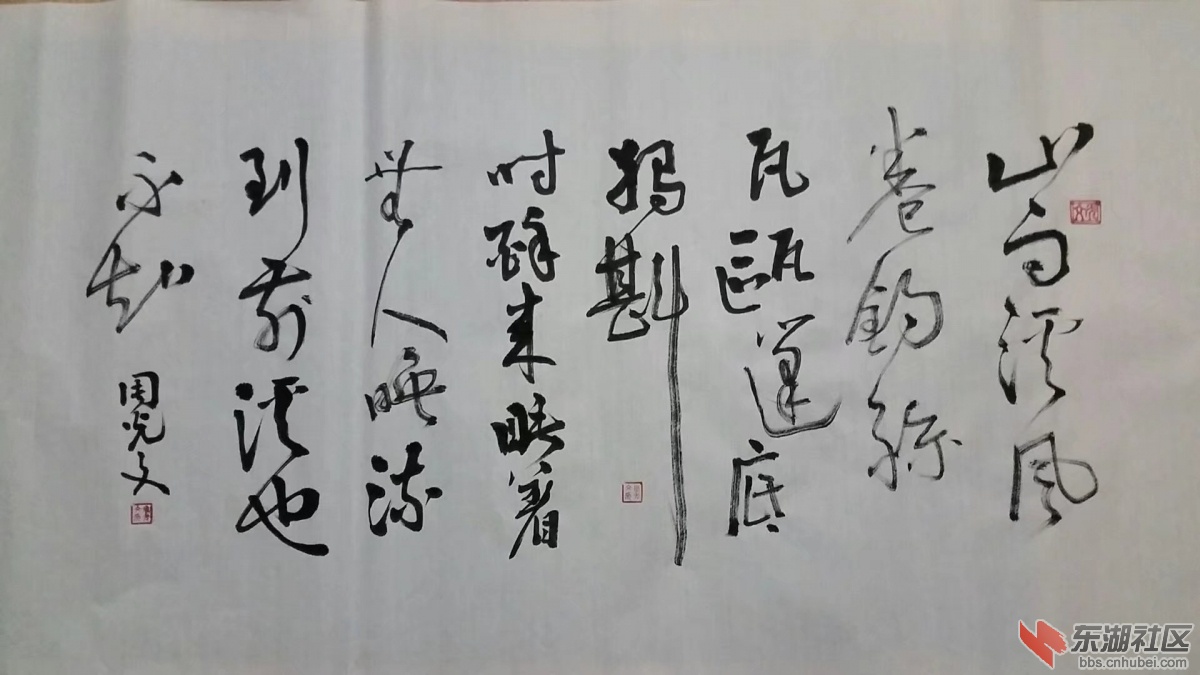 山雨溪風
卷釣絲
瓦甌篷底
獨斟
时醉来睡着
無人唤流
到前溪也
不知
周光文
东湖社区
bbs.cnhubei.com